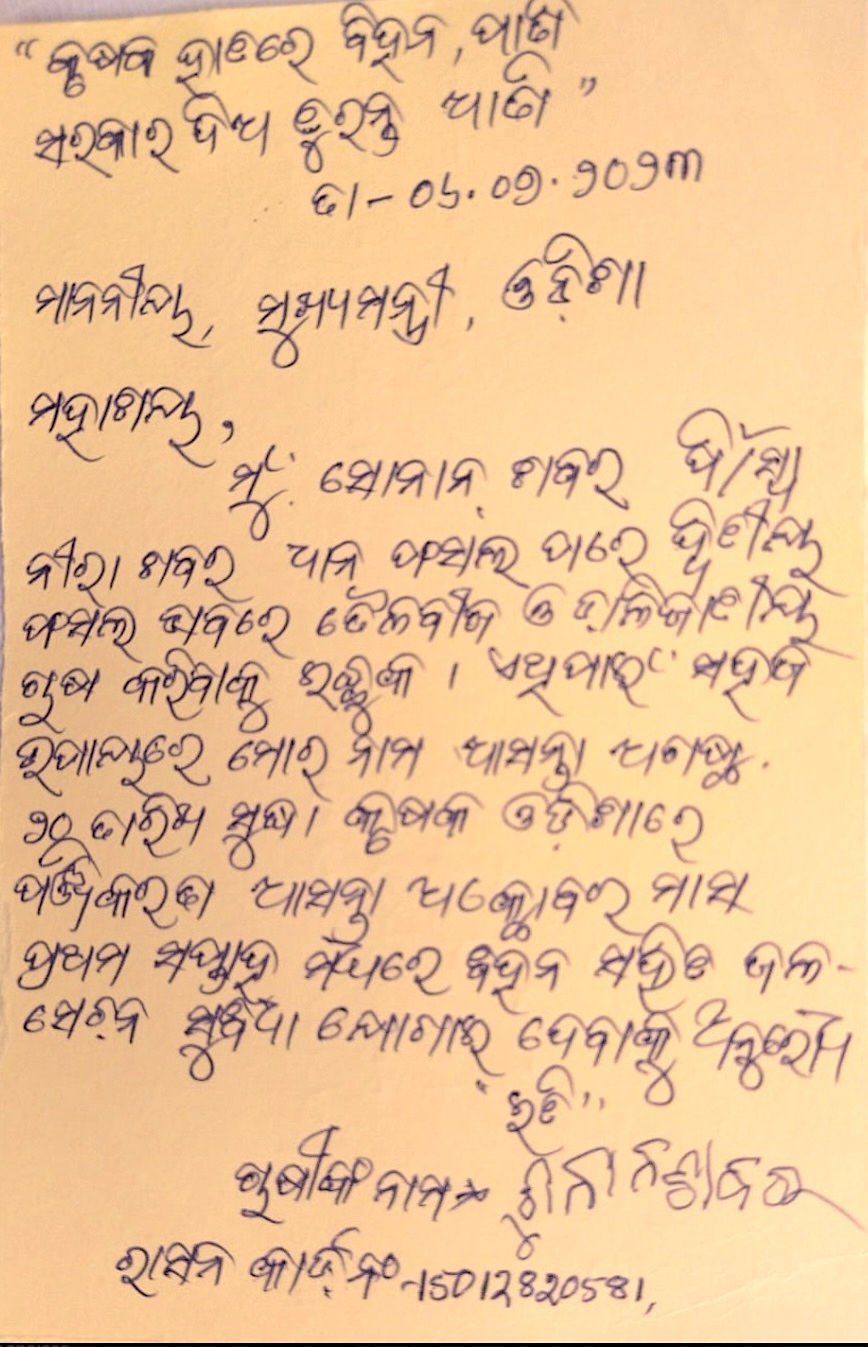 “କୃଷକ ହାତରେ ବିହନ, ପାଣି
ସରକାର ଦିଅ ତୁରନ୍ତ ଆଣି”
ତା-୦୪.୦୭.୨୦୨୩
ମାନନୀୟ, ମୁଖ୍ୟମନ୍ତ୍ରୀ, ଓଡ଼ିଶା
ମହାଶୟ,
ମୁଁ ସୋନାନ ଶବର ପି/ସ୍ୱା
ନୀରା ଶବର ଧାନ ଫସଲ ପରେ ଦ୍ୱିତୀୟ
ଫସଲ ଭାବରେ ତୈଳବୀଜ ଓ ଡ଼ାଲିଜାତୀୟ
ଚାଷ କରିବାକୁ ଇଚ୍ଛୁକ । ଏଥିପାଇଁ ସହିତ
ଉପାୟରେ ମୋର ନାମ ଆସନ୍ତା ଅଗଷ୍ଟ.
୨୦ ତାରିଖ ସୁଦ୍ଧା କୃଷକ ଓଡ଼ିଶାରେ
ପଞ୍ଜିକରଣ ଆସନ୍ତା ଅକ୍ଟୋବର ମାସ
ପ୍ରଥମ ସପ୍ତାହ ମଧ୍ୟରେ ବିହନ ସହିତ ଜଳ-
ସେଚନ ସୁବିଧା ଯୋଗାଇ ଦେବାକୁ ଅନୁରୋଧ
“ଇତି”
ଚାଷୀଙ୍କ ନାମ
ରାସନ କାର୍ଡ଼ ନଂ-15012820581,